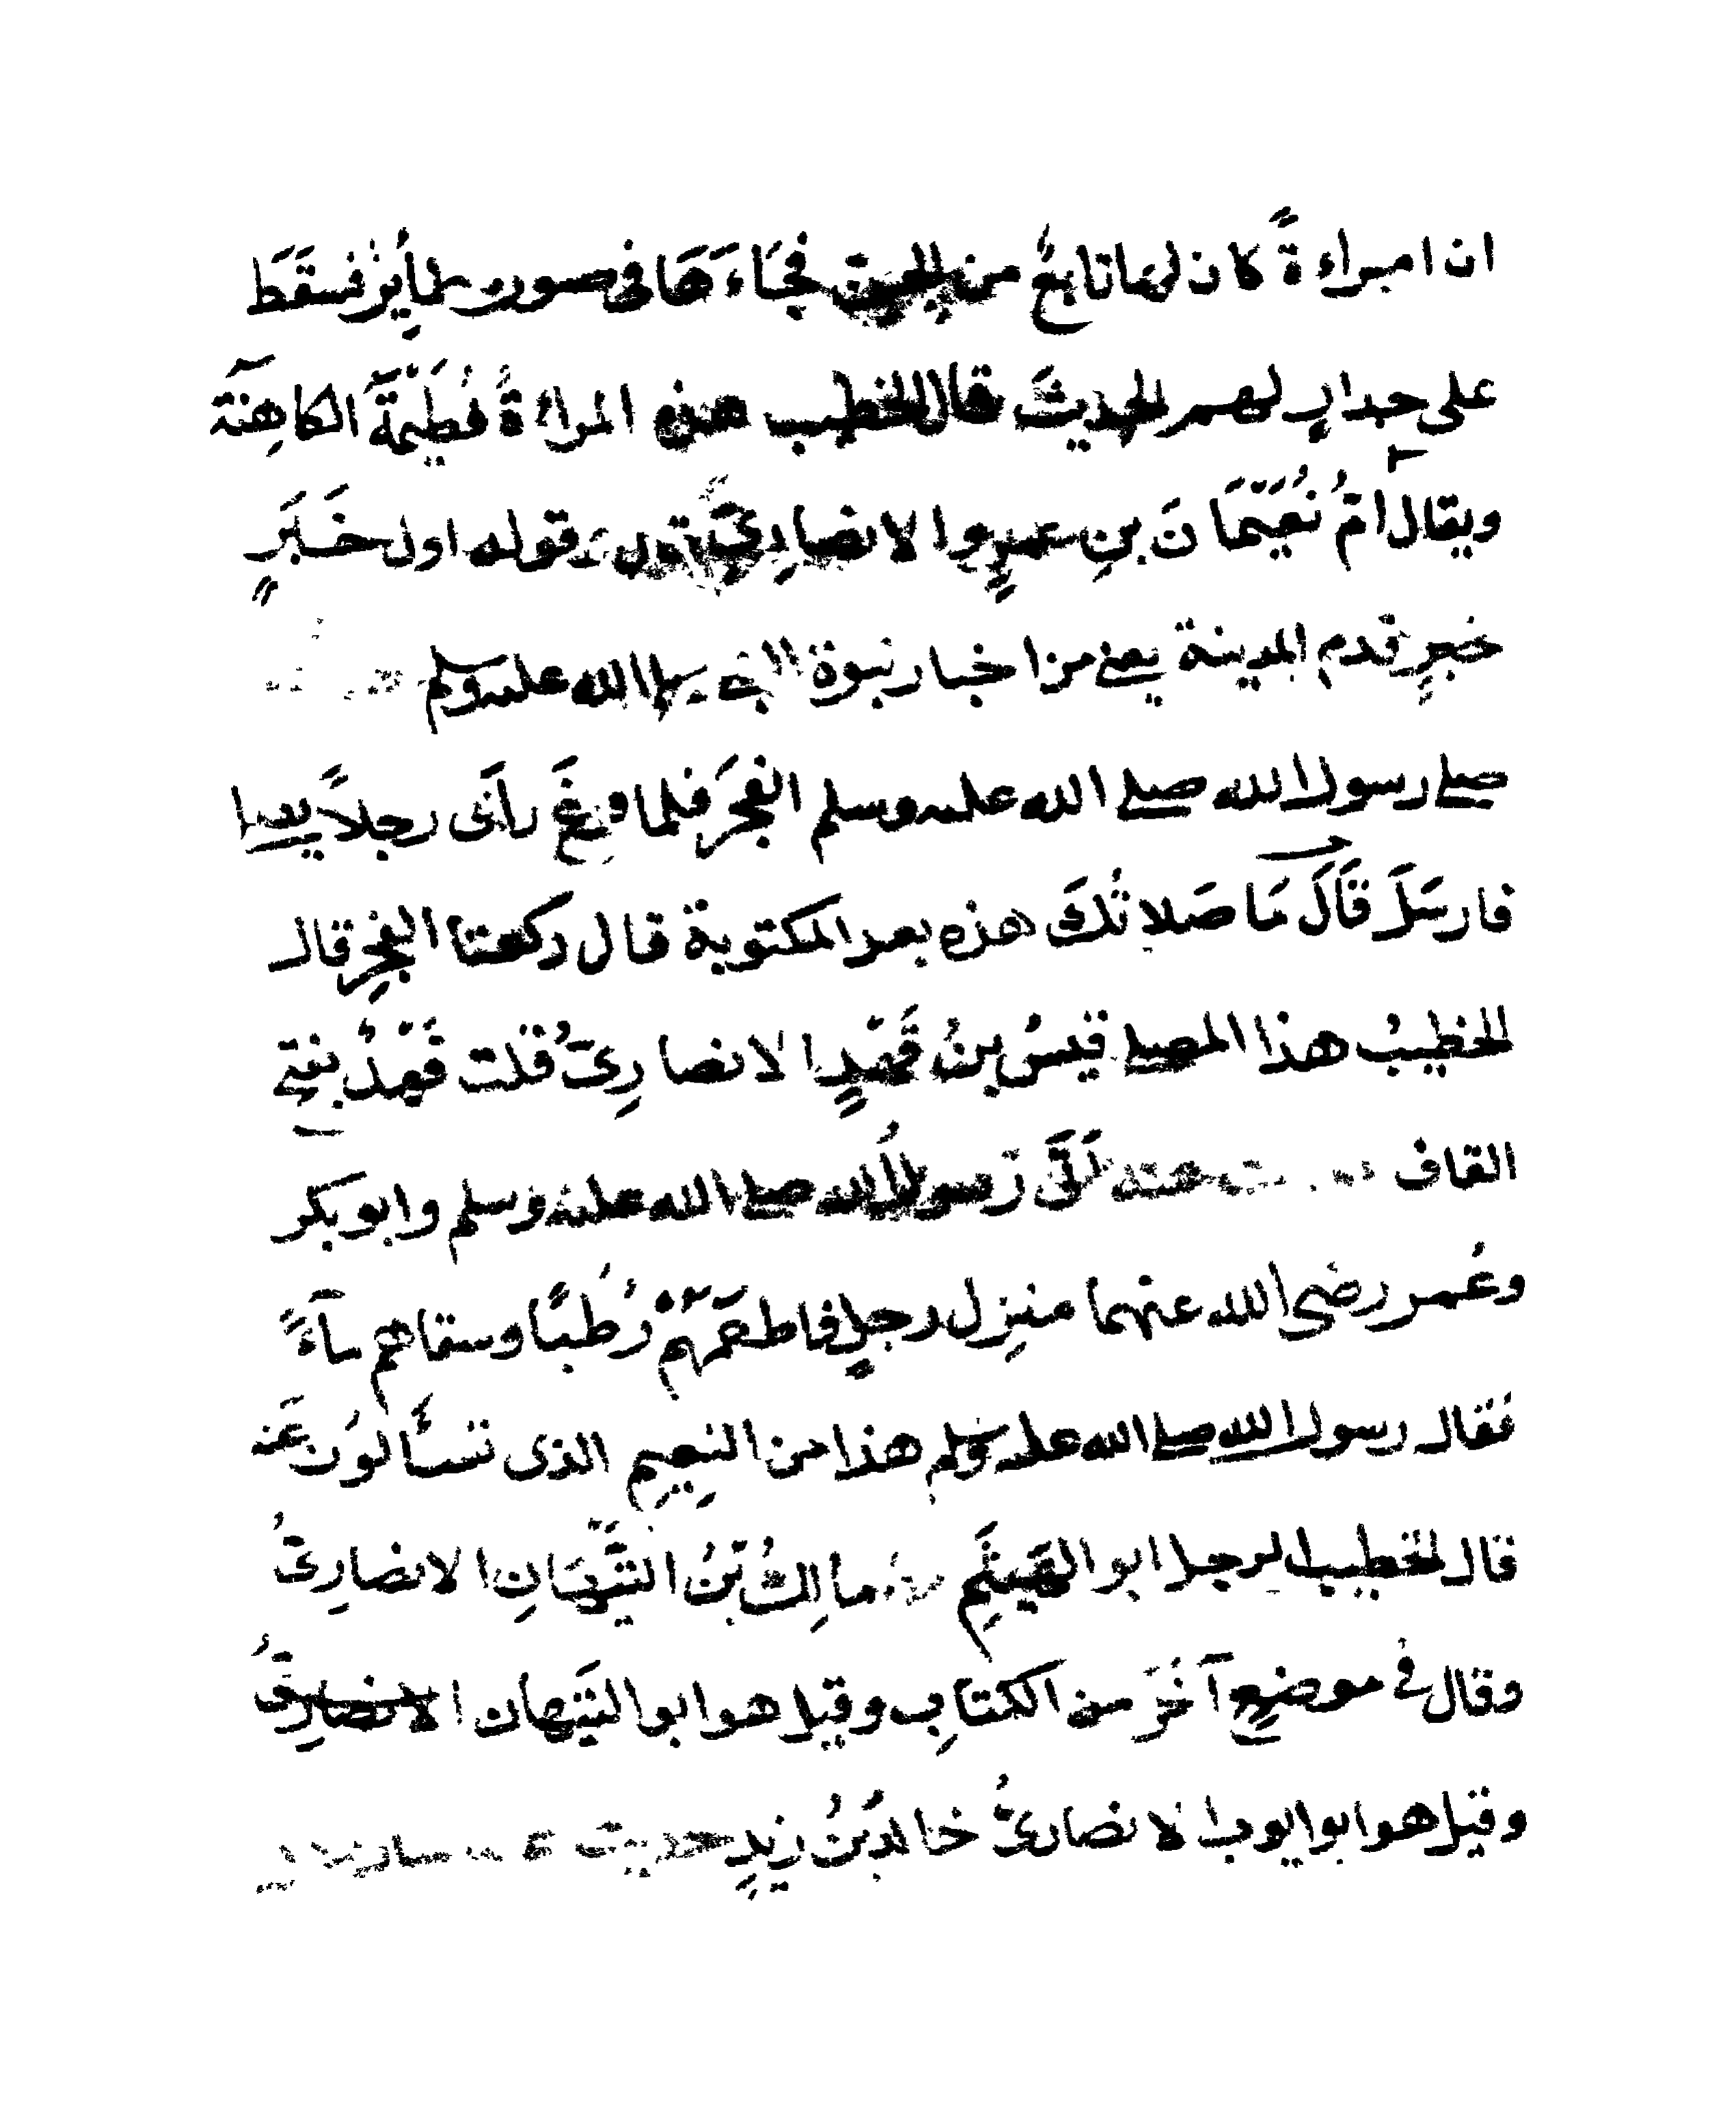 ان امراءةً كان لها تابعٌ من الجن فجَاءَهَا فى صورة طأيِرٍ فسقَطَ
على جدارٍ لهم الحديثَ قال الخطيب هذه المراءةُ فُطَيْمَةُ الكاهِنَة
ويقال امُّ نُعَيْمَانَ بنِ عمرٍو الانصارِيِّ قوله اول خَبَرٍ
خبرٍ قدم المدينة يعنى من اخبار نبوة النبى صلى الله عليه وسلم
صلى رسول الله صلى الله عليه وسلم الفجرَ فلما فرغَ رأَى رجلاً يصلى
فارسَلَ قَالَ مَا صَلاتُكَ هذه بعد المكتوبة قال ركعتا الفجرِ قال
الخطيبُ هذا المصلى قيسُ بنُ قَهْدٍ الانصارِىُّ قلت قَهْدٌ بفتح
القاف اَتَى رَسولُ الله صلى الله عليه وسلم وابو بكر
وعُمر رضى الله عنهما منزِل رجلٍ فاطعَمَهُمْ رُطَبًا وسقاهم مآءً
فقال رسول الله صلى الله عليه وسلم هذا من النعِيمِ الذى تسألوُن عَنه
قال الخطيب الرجل ابو الهَيثَمِ مالِكُ بْنُ التَّيِّهَانِ الانصارِىُّ
وقال فى موضعٍ آخَرَ من الكتابِ وقيل هو ابو التَيهان الانصارِىُّ
وقيل هو ابو ايوب الانصارىُّ خالدُ بْنُ زيدٍ حديث